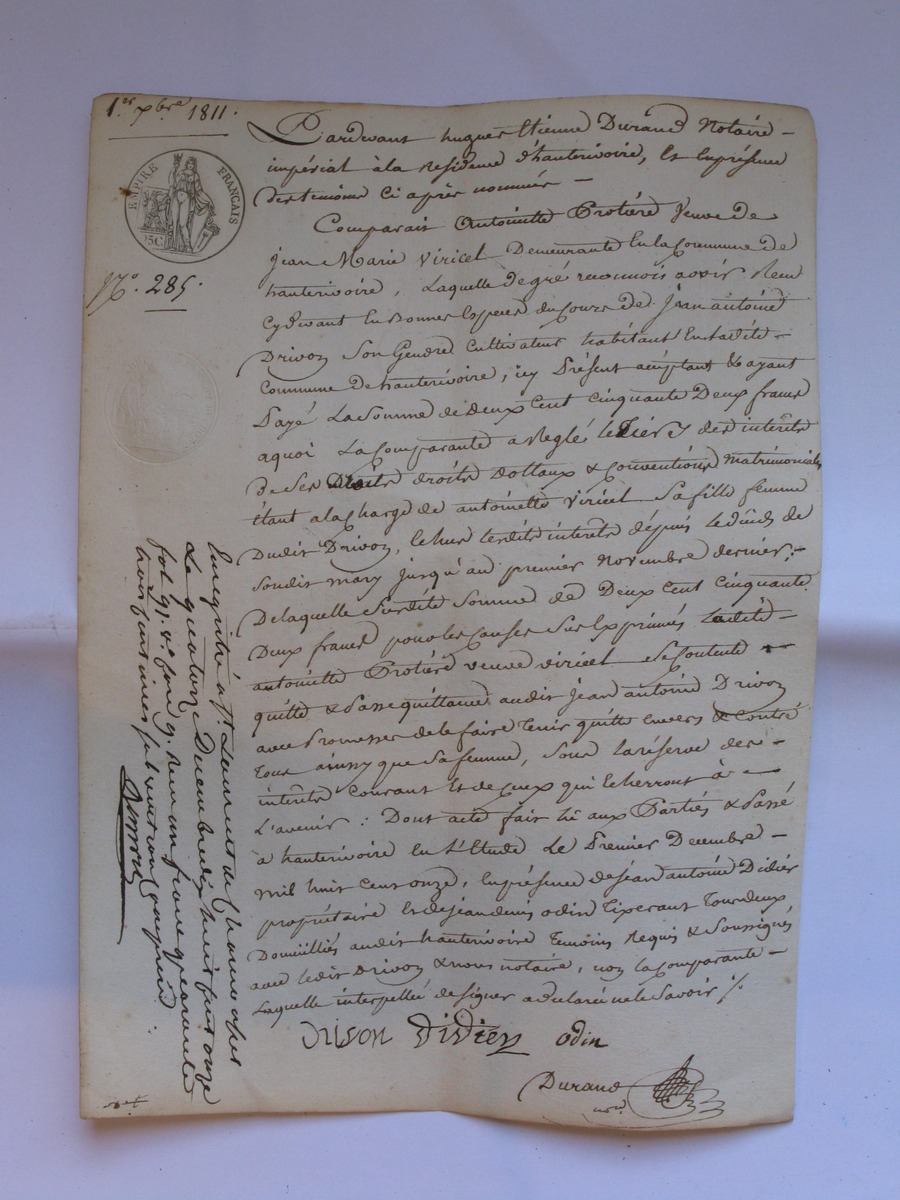 1.er Xbre 1811.
EMPIRE FRANÇAIS
75C.
N.o 285.
Pardevant hugues Etienne Durand Notaire
impérial à la Residence d'hauterivoire, Et En présence
des temoins Ci après nommés
Comparait Antoinette Protiere Veuve de
Jean Marie Viricel Demeurante En la Commune de
hauterivoire, Laquelle de gré reconnois avoir Recu
Cydevant En Bonnes Espèces du Cours de Jean antoine
Drivon Son Gendre Cultivateur habitant En ladite
Commune de hauterivoire, icy Présent acceptant & ayant
Payé La Somme de Deux Cent Cinquante Deux francs
aquoi La Comparante a Reglé le Tiers des interêts
de Ses droits dottaux & Conventions Matrimoniales
étant a la Charge de antoinette Viricel Sa fille femme
Dudit Drivon, lesdits interêts depuis le décès de
Sondit mary Jusqu'au premier Novembre dernier;
De laquelle Susdite Somme de Deux Cent Cinquante
Deux francs pour les Causes Sus Exprimés Ladite
antoinette Protiere veuve viricel Se Contente
quitte & Passe quittance audit Jean antoine Drivon
avec Promesses de le faire Tenir quitte Envers & Contre
Tous ainsy que Sa femme, Sous la réserve des
interêts Courant Et de Ceux qui lecherront à
L'avenir : Dont acte fait lu aux Parties & Passé
a hauterivoire En L'Etude Le Premier Decembre
mil huit Cent onze, En présence de Jean antoine Didier
propriétaire Et de Jean denis odin Tixerant Tous deux
Domicilliés audit hauterivoire Temoins Requis & Soussignés
avec ledit Drivon & nous notaire, non la Comparante
Laquelle interpellée de signer a declaré ne le Savoir ./.
Drivon Didier odin
Durand
not.
Enregistré à St Laurent de Chamousset
Le quatorze Decembre dix huit cent onze
fol. 91. v.o Case 9. Reçu un franc quarante
trois centimes subvention comprise.